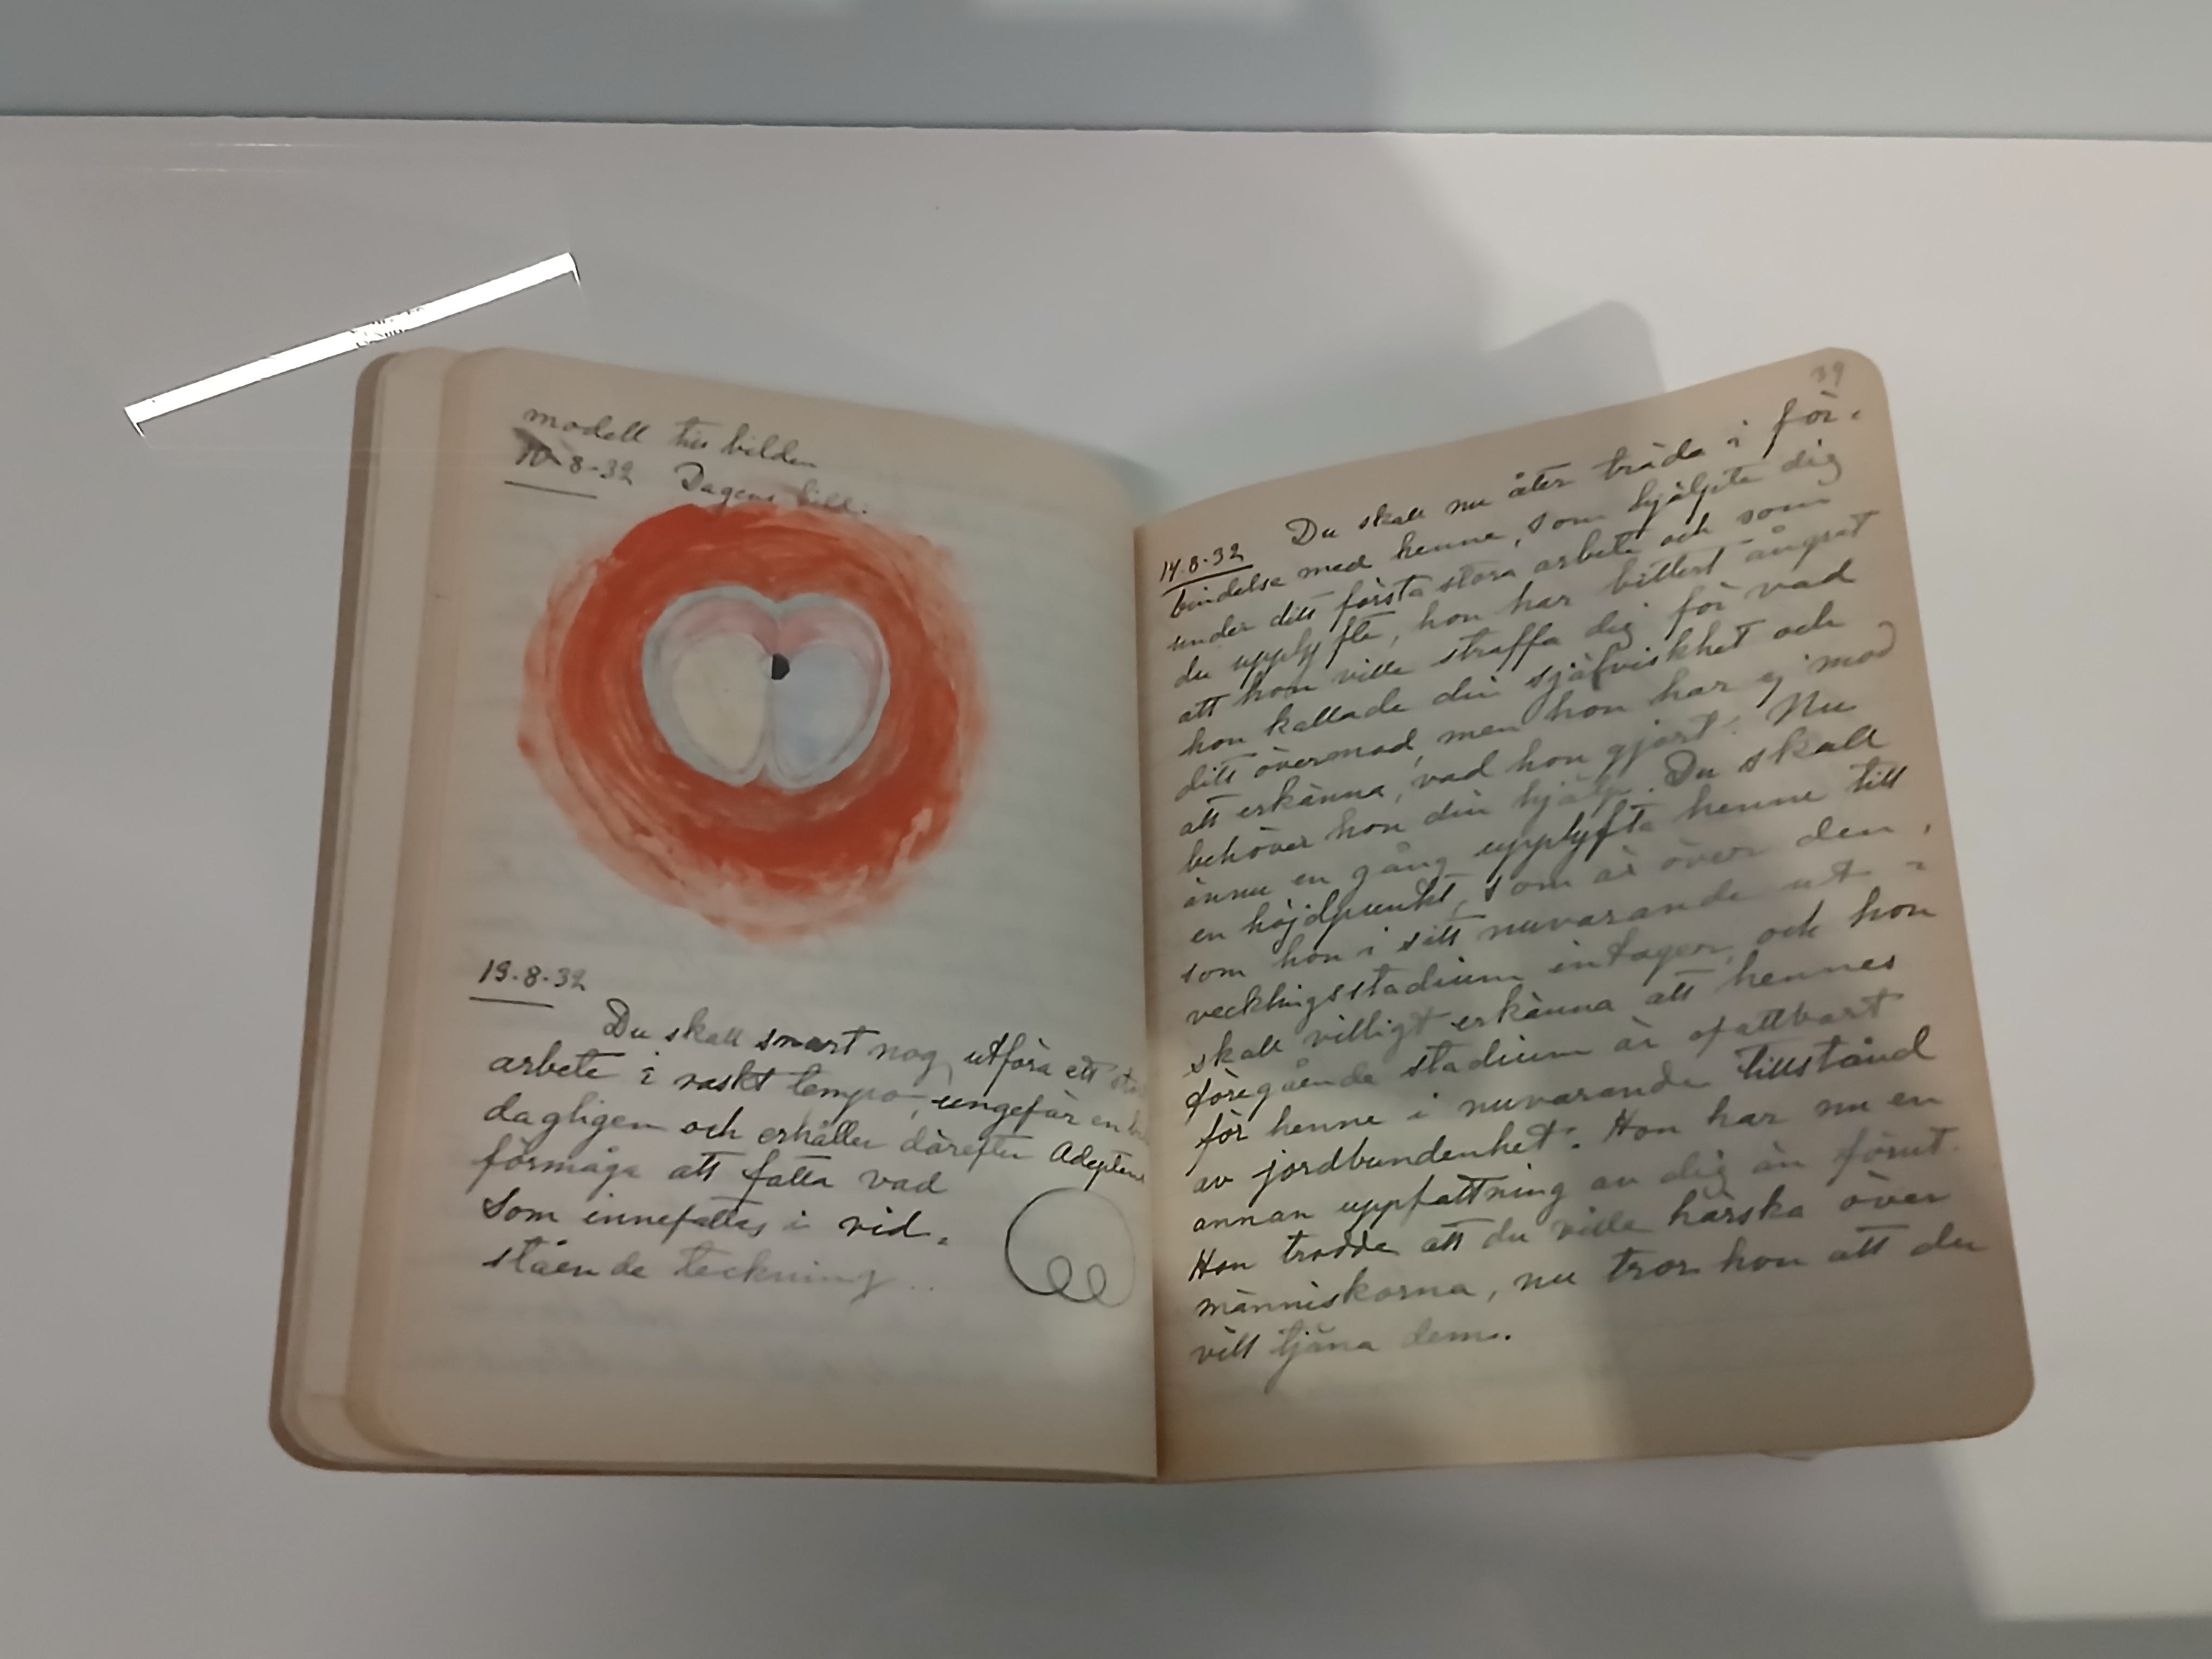 modell till bilden
8-32 Dagens bild:
13-8-32
Du skall snart nog utföra ett
arbete i raskt tempo, ungefär en
dagligen och erhåller därefter Adeptens
förmåga att fatta vad
som innefattas i vid-
stående teckning..
39
14.8.32 Du skall nu åter träda i för-
bindelse med henne, som hjälpte dig
under ditt första stora arbete och som
du upplyfte, hon har bittert ångrat
att hon ville straffa dig för vad
hon kallade din själviskhet och
ditt övermod, men hon har ej mod
att erkänna, vad hon gjort. Nu
behöver hon din hjälp. Du skall
ännu en gång upplyfta henne till
en höjdpunkt, som är över den,
som hon i sitt nuvarande ut-
vecklingsstadium intager, och hon
skall villigt erkänna att hennes
föregående stadium är ofattbart
för henne i nuvarande tillstånd
av jordbundenhet. Hon har nu en
annan uppfattning av dig än förut.
Hon trodde att du ville härska över
människorna, nu tror hon att du
vill tjäna dem.